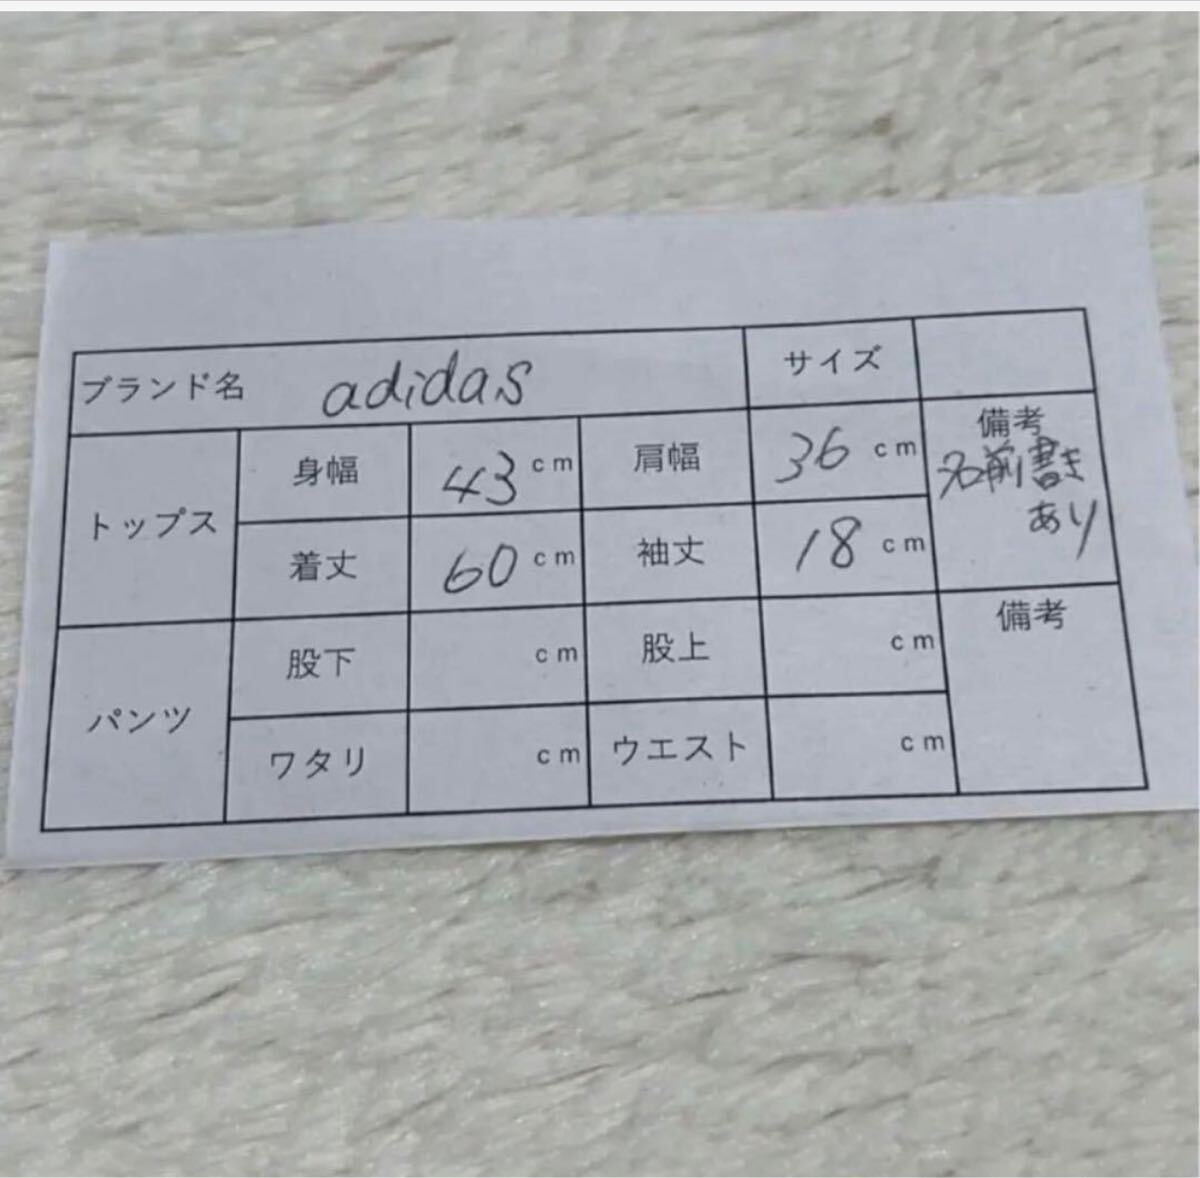 ブランド名 adidas サイズ
トップス 身幅 43 cm 肩幅 36 cm 備考
名前書き
あり
着丈 60 cm 袖丈 18 cm
パンツ 股下 cm 股上 cm 備考
ワタリ cm ウエスト cm